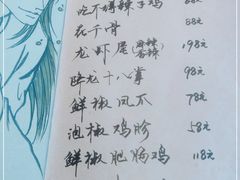 吃不得辣子鸡 88元
花干骨 88元
龙虾尾(麻辣 香辣) 198元
降龙十八掌 98元
鲜椒凤爪 78元
泡椒鸡胗 58元
鲜椒肥肠鸡 118元